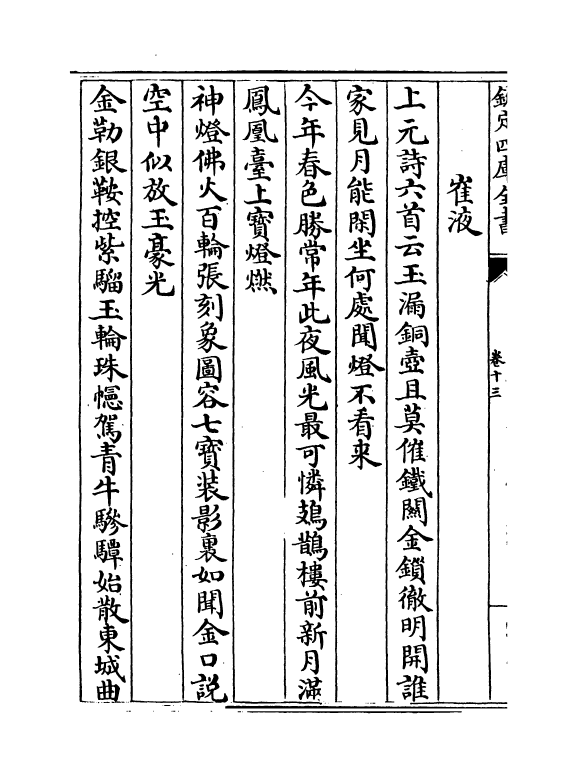 欽定四庫全書
卷十三
崔液
上元詩六首云玉漏銅壺且莫催鐵關金鎖徹明開誰
家見月能閑坐何處聞燈不看来
今年春色勝常年此夜風光最可憐鳷鵲樓前新月滿
鳳凰臺上寳燈燃
神燈佛火百輪張刻象圖容七寳装影裏如聞金口説
空中似放玉豪光
金勒銀鞍控紫騮玉輪珠幰駕青牛驂驔始散東城曲